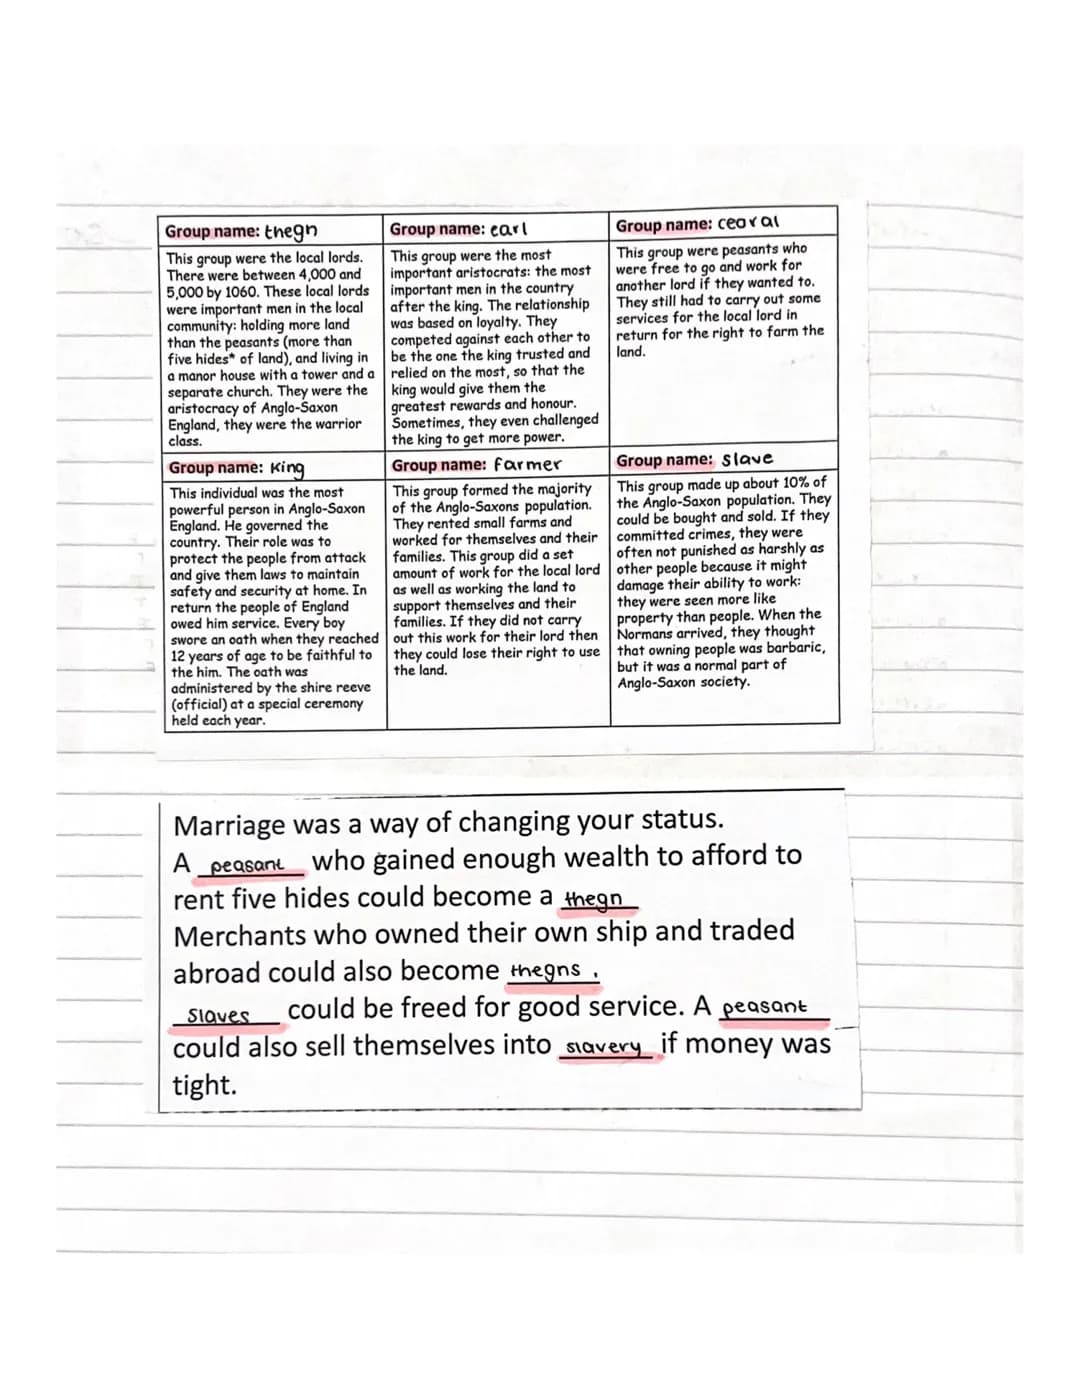 Group name: thegn
This group were the local lords.
There were between 4,000 and
5,000 by 1060. These local lords
were important men in the local
community: holding more land
than the peasants (more than
five hides* of land), and living in
a manor house with a tower and a
separate church. They were the
aristocracy of Anglo-Saxon
England, they were the warrior
class.
Group name: earl
This group were the most
important aristocrats: the most
important men in the country
after the king. The relationship
was based on loyalty. They
competed against each other to
be the one the king trusted and
relied on the most, so that the
king would give them the
greatest rewards and honour.
Sometimes, they even challenged
the king to get more power.
Group name: ceoral
This group were peasants who
were free to go and work for
another lord if they wanted to.
They still had to carry out some
services for the local lord in
return for the right to farm the
land.
Group name: King
This individual was the most
powerful person in Anglo-Saxon
England. He governed the
country. Their role was to
protect the people from attack
and give them laws to maintain
safety and security at home. In
return the people of England
owed him service. Every boy
swore an oath when they reached
12 years of age to be faithful to
the him. The oath was
administered by the shire reeve
(official) at a special ceremony
held each year.
Group name: farmer
This group formed the majority
of the Anglo-Saxons population.
They rented small farms and
worked for themselves and their
families. This group did a set
amount of work for the local lord
as well as working the land to
support themselves and their
families. If they did not carry
out this work for their lord then
they could lose their right to use
the land.
Group name: slave
This group made up about 10% of
the Anglo-Saxon population. They
could be bought and sold. If they
committed crimes, they were
often not punished as harshly as
other people because it might
damage their ability to work:
they were seen more like
property than people. When the
Normans arrived, they thought
that owning people was barbaric,
but it was a normal part of
Anglo-Saxon society.
Marriage was a way of changing your status.
A peasant who gained enough wealth to afford to
rent five hides could become a thegn
Merchants who owned their own ship and traded
abroad could also become thegns.
Slaves could be freed for good service. A peasant
could also sell themselves into slavery if money was
tight.